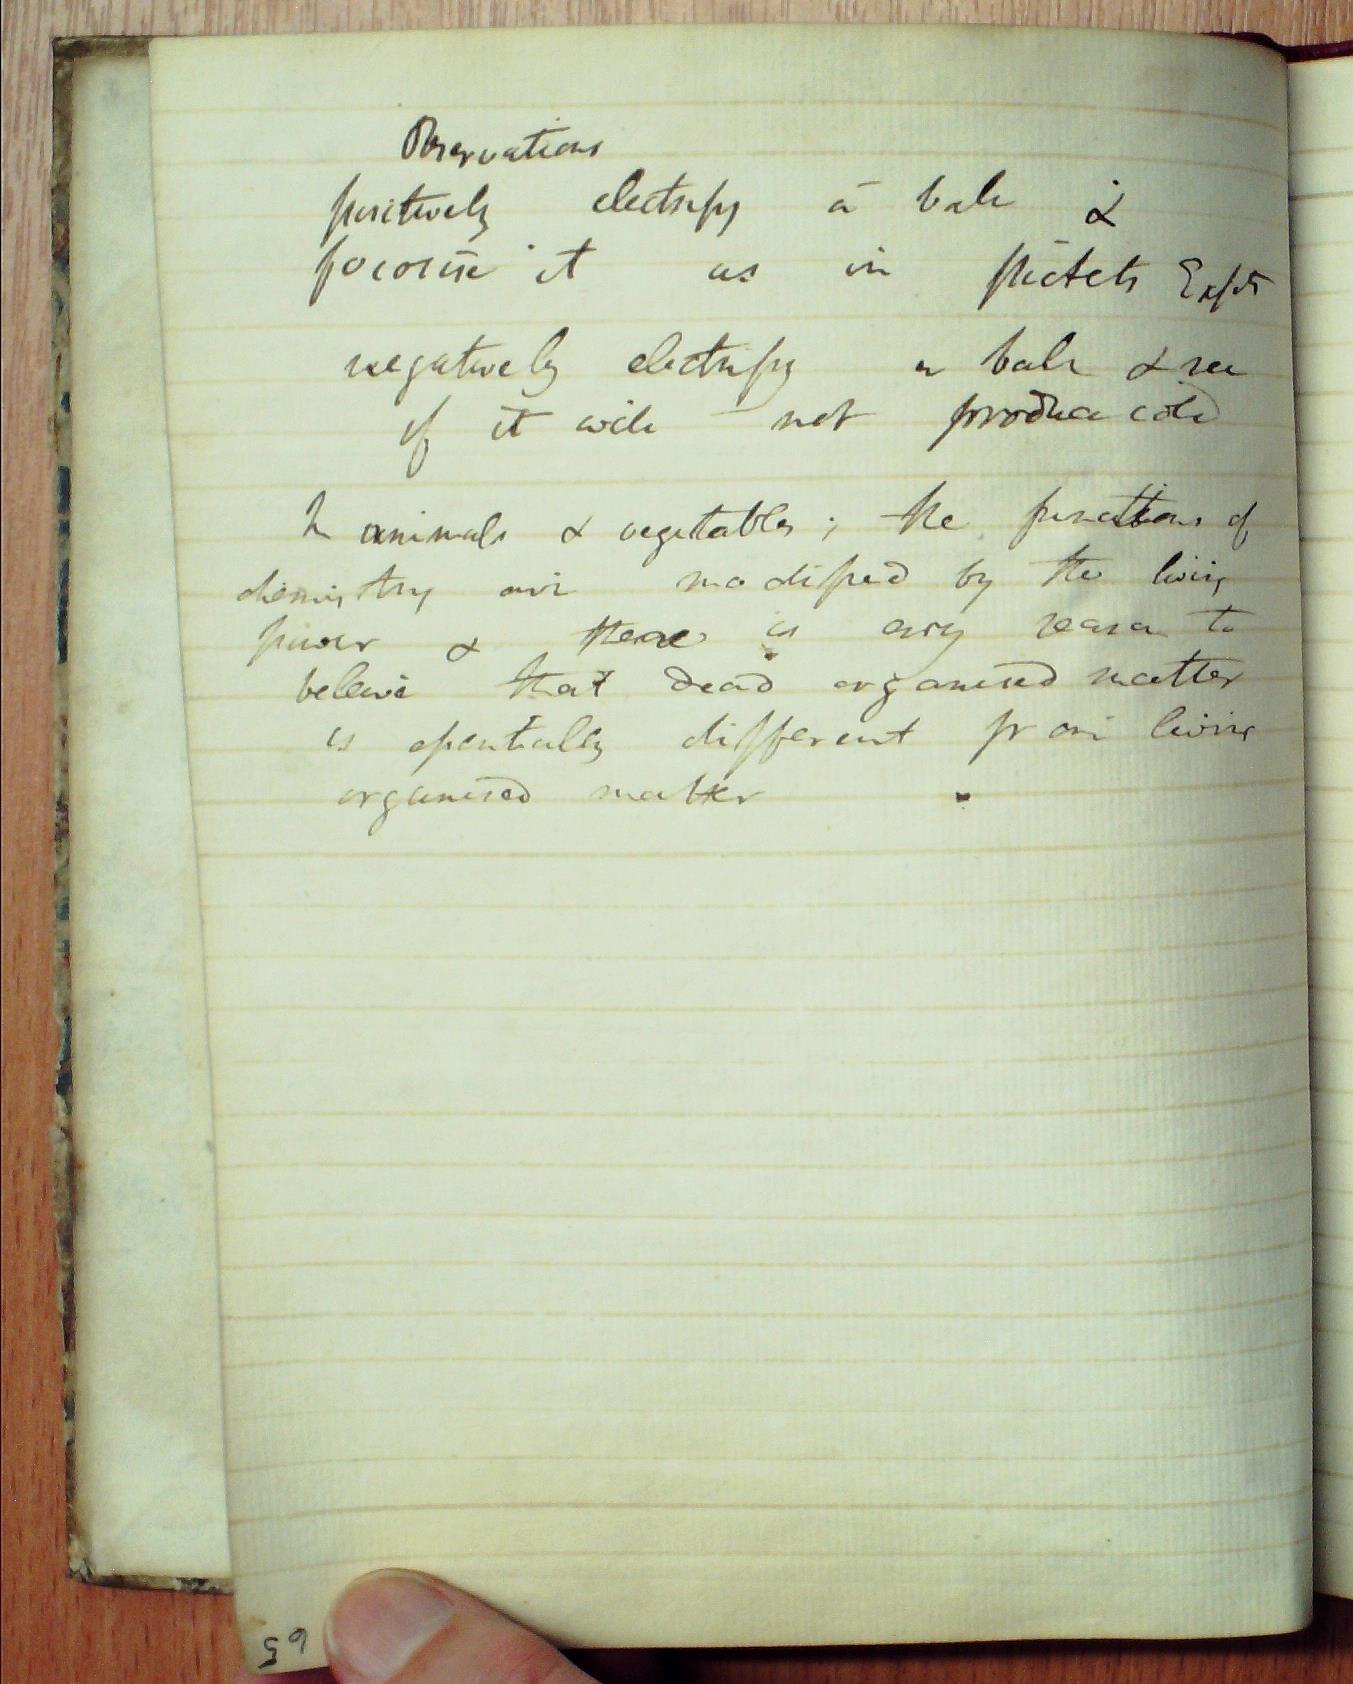 Observations
positively electrify a ball &
focorise it as in Pictets Expts
negatively electrify a ball & see
if it will not produce cold
In animals & vegetables; the functions of
chemistry are modified by the living
power & there is every reason to
beleive that dead organised matter
is essentially different from living
organised matter
65